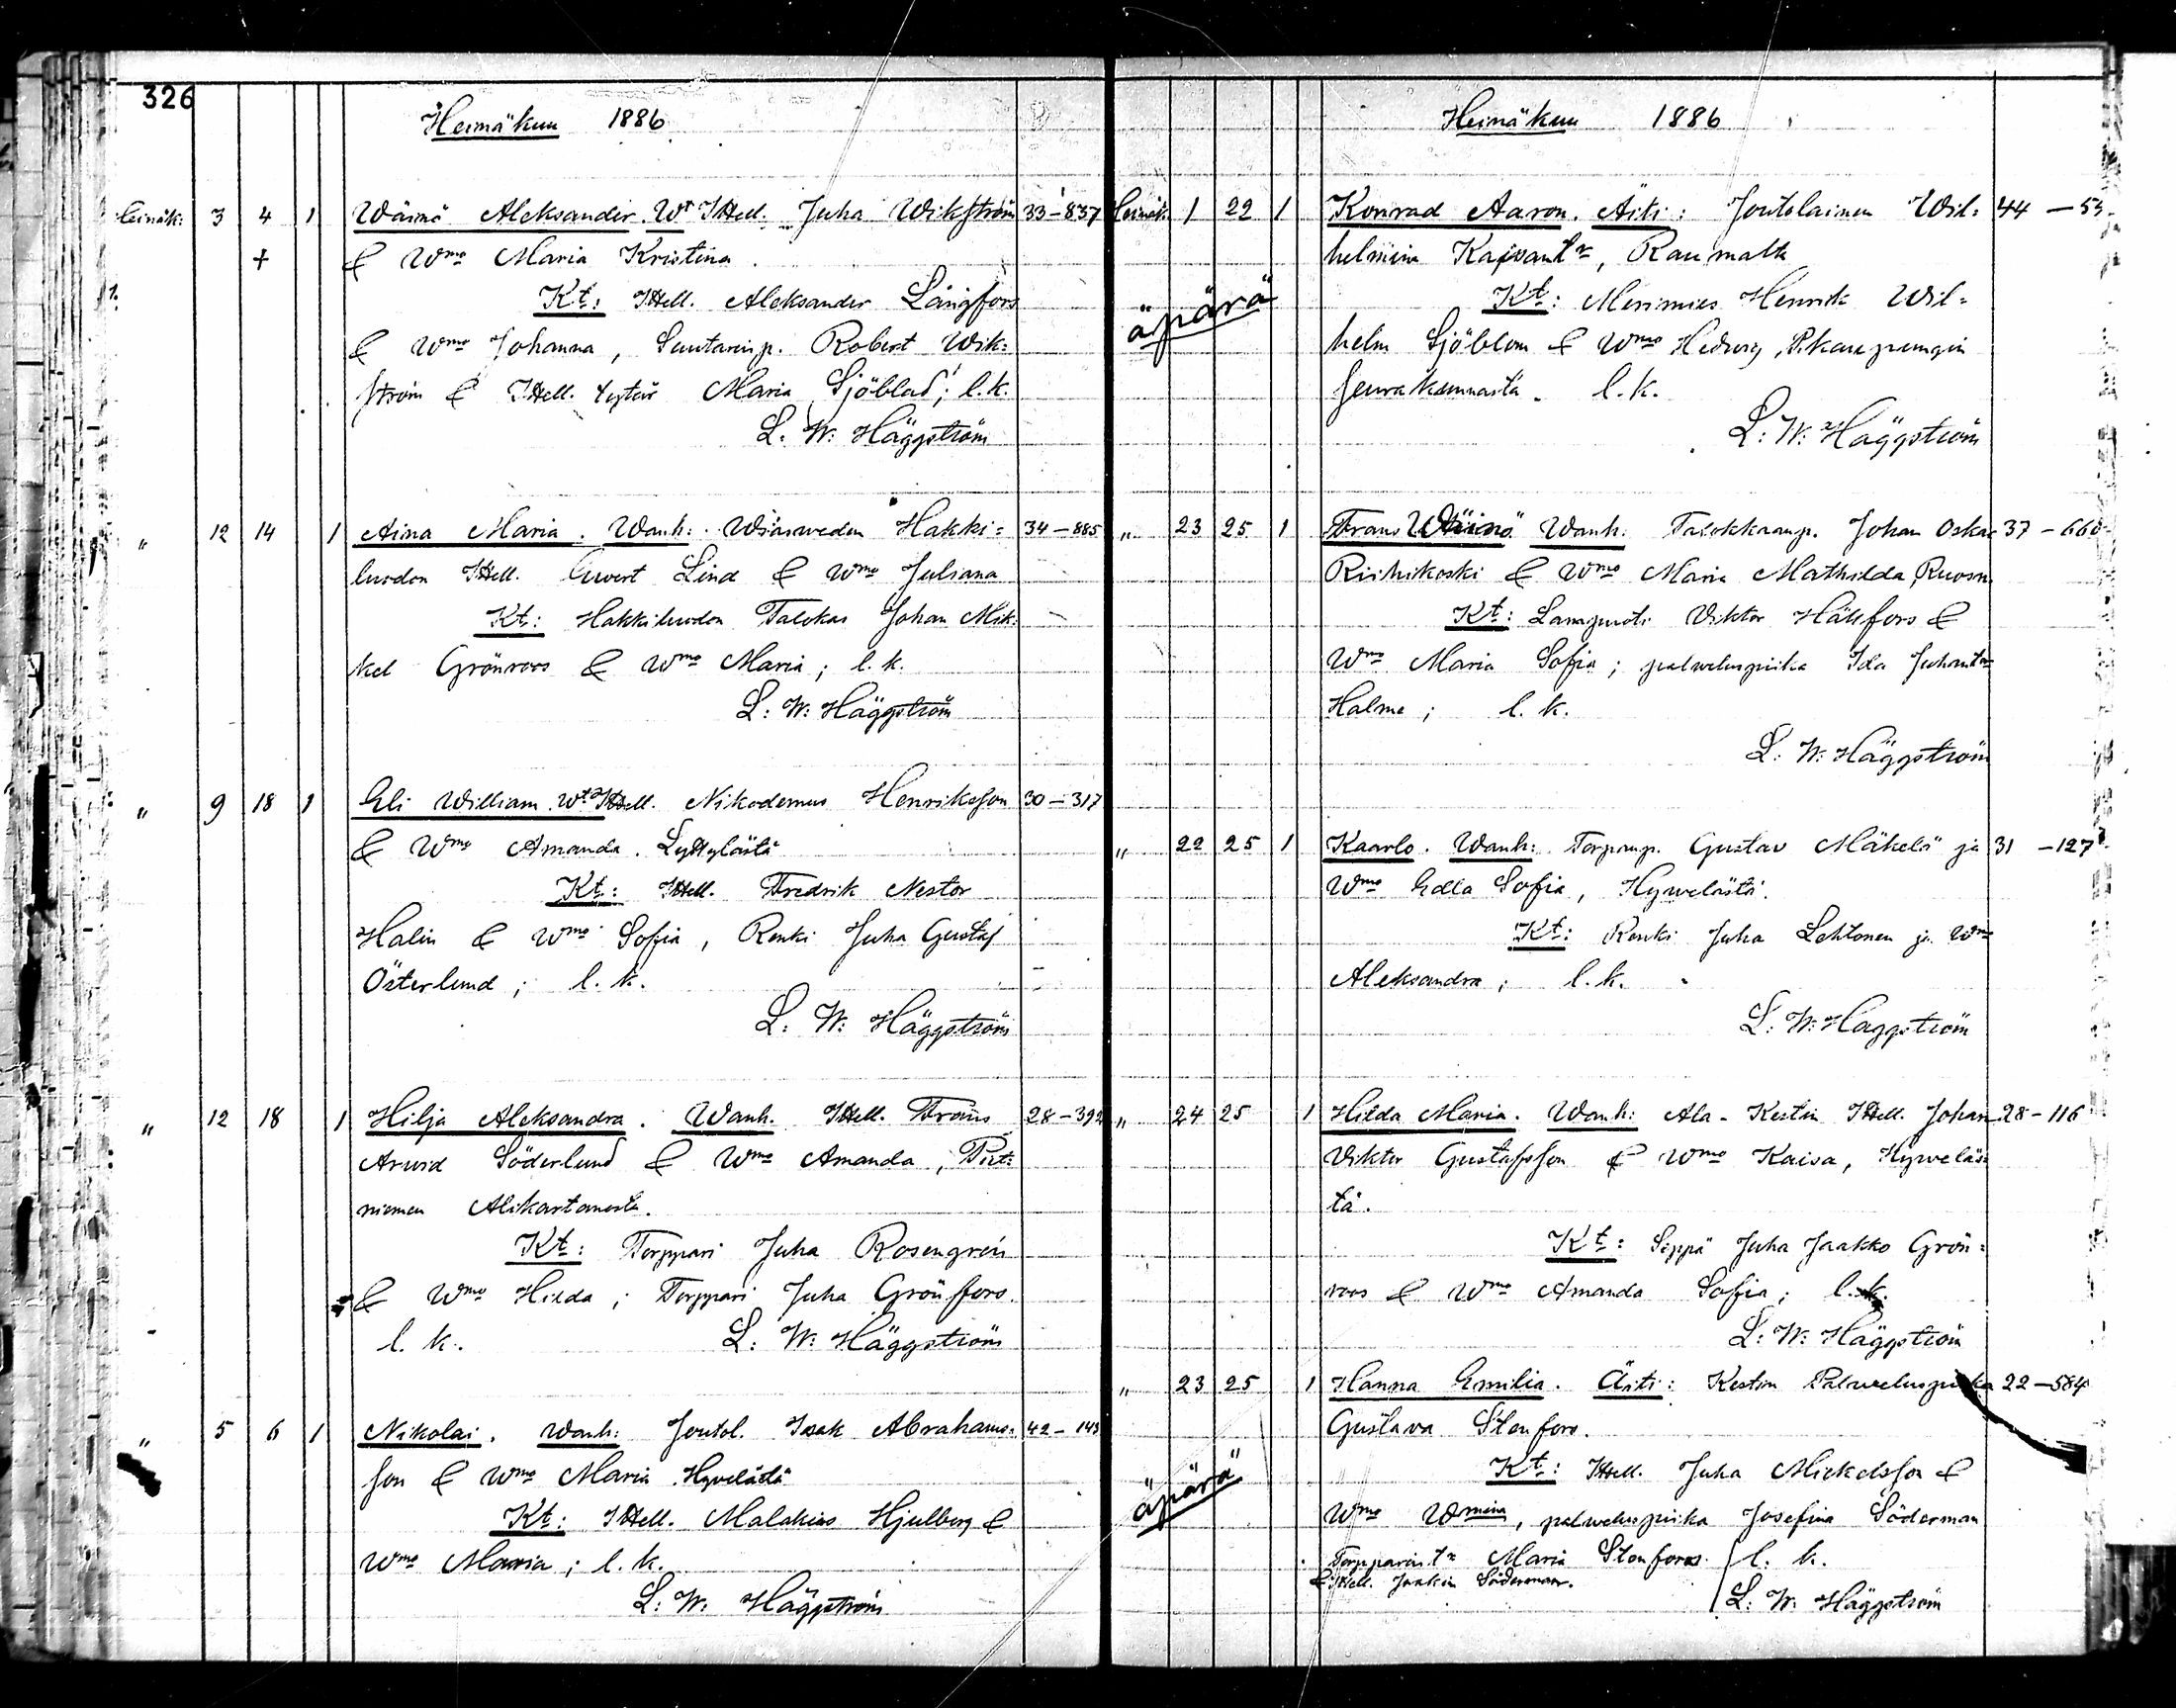 326
Heinäkuu 1886
Heinäk: 3 4 1 Wäinö Aleksander. Wt Itsell. Juha Wikström 33-837
+ & Wmo Maria Kristina.
Kt: Itsell. Aleksander Långfors
& Wmo Johanna, Suutarinp. Robert Wik=
ström & Itsell. tytär Maria Sjöblad; l. k.
L: W: Häggström
" 12 14 1 Aina Maria. Wanh: Wiasweden Hakki= 34-885
luodon Itsell. Ewert Lind & Wmo Juliana
Kt: Hakkiluodon Talokas Johan Mik:
kel Grönroos & Wmo Maria; l. k.
L: W: Häggström
" 9 18 1 Eli William. Wt Itsell. Nikodemus Henriksson 30-317
& Wmo Amanda. Lyttylästä
Kt: Itsell. Fredrik Nestor
Halin & Wmo Sofia, Renki Juha Gustaf
Österlund; l. k.
L: W: Häggström
" 12 18 1 Hilja Aleksandra. Wanh. Itsell. Frans 28-392
Arwid Söderlund & Wmo Amanda,
niemen Alikartanosta.
Kt: Torppari Juha Rosengrén
& Wmo Hilda; Torppari Juha Grönfors.
l. k. L: W: Häggström
" 5 6 1 Nikolai. Wanh: Joutol. Isak Abrahams= 42-143
son & Wmo Maria Hyvelästä
Kt: Itsell. Malakias Hjulberg &
Wmo Maria; l. k.
L: W: Häggström
Heinäkuu 1886
Heinäk 1 22 1 Konrad Aaron. Äiti: Joutolainen Wil= 44-53
helmina Kajsantr, Raumalta
äpärä Kt: Merimies Henrik Wil=
helm Sjöblom & Wmo Hedwig, P. kaupungin
seurakunnasta. l. k.
L: W: Häggström
" 23 25 1 Frans Wäinö. Wanh: Talokkaanp. Johan Oskar 37-660
Riihikoski & Wmo Maria Mathilda,
Kt: Lampuoti Viktor Hällfors &
Wmo Maria Sofia; palveluspiika Ida Juhantr
Halme; l. k.
L: W: Häggström
" 22 25 1 Kaarlo. Wanh: Torpanp. Gustav Mäkelä ja 31-127
Wmo Edla Sofia, Hyvelästä.
Kt: Renki Juha Lehtonen ja Wmo
Aleksandra; l. k.
L: W: Häggström
" 24 25 1 Hilda Maria. Wanh: Ala-Kestin Itsell. Johan 28-116
Viktor Gustafsson & Wmo Kaisa, Hyveläs=
tä.
Kt: Seppä Juha Jaakko Grön=
roos & Wmo Amanda Sofia; l. k.
L: W: Häggström
" 23 25 1 Hanna Emilia. Äiti: Kestin Palveluspiika 22-584
Gustava Stenfors.
äpärä Kt: Itsell. Juha Mickelsson &
Wmo Wmina, palveluspiika Josefina Söderman
Torpparintr Maria Stenfors. l. k.
& Itsell. Joakim Söderman. L: W: Häggström